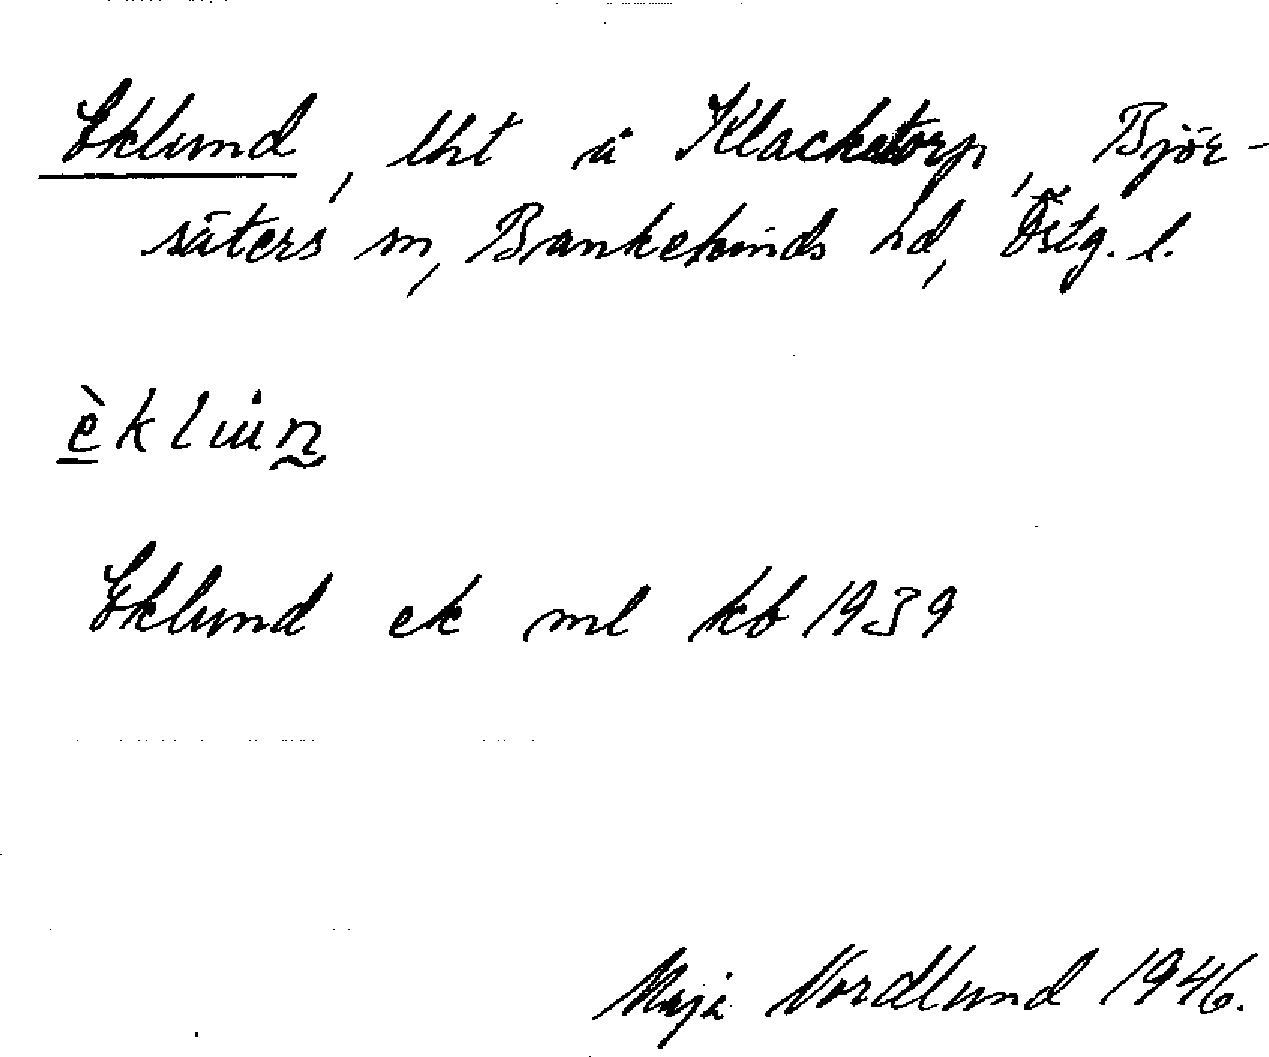 Eklund, lht å Klackatorp, Björ-
säters sn, Bankekinds hd, Östg. l.
Eklund ek ml kb 1939
Maja Nordlund 1946.